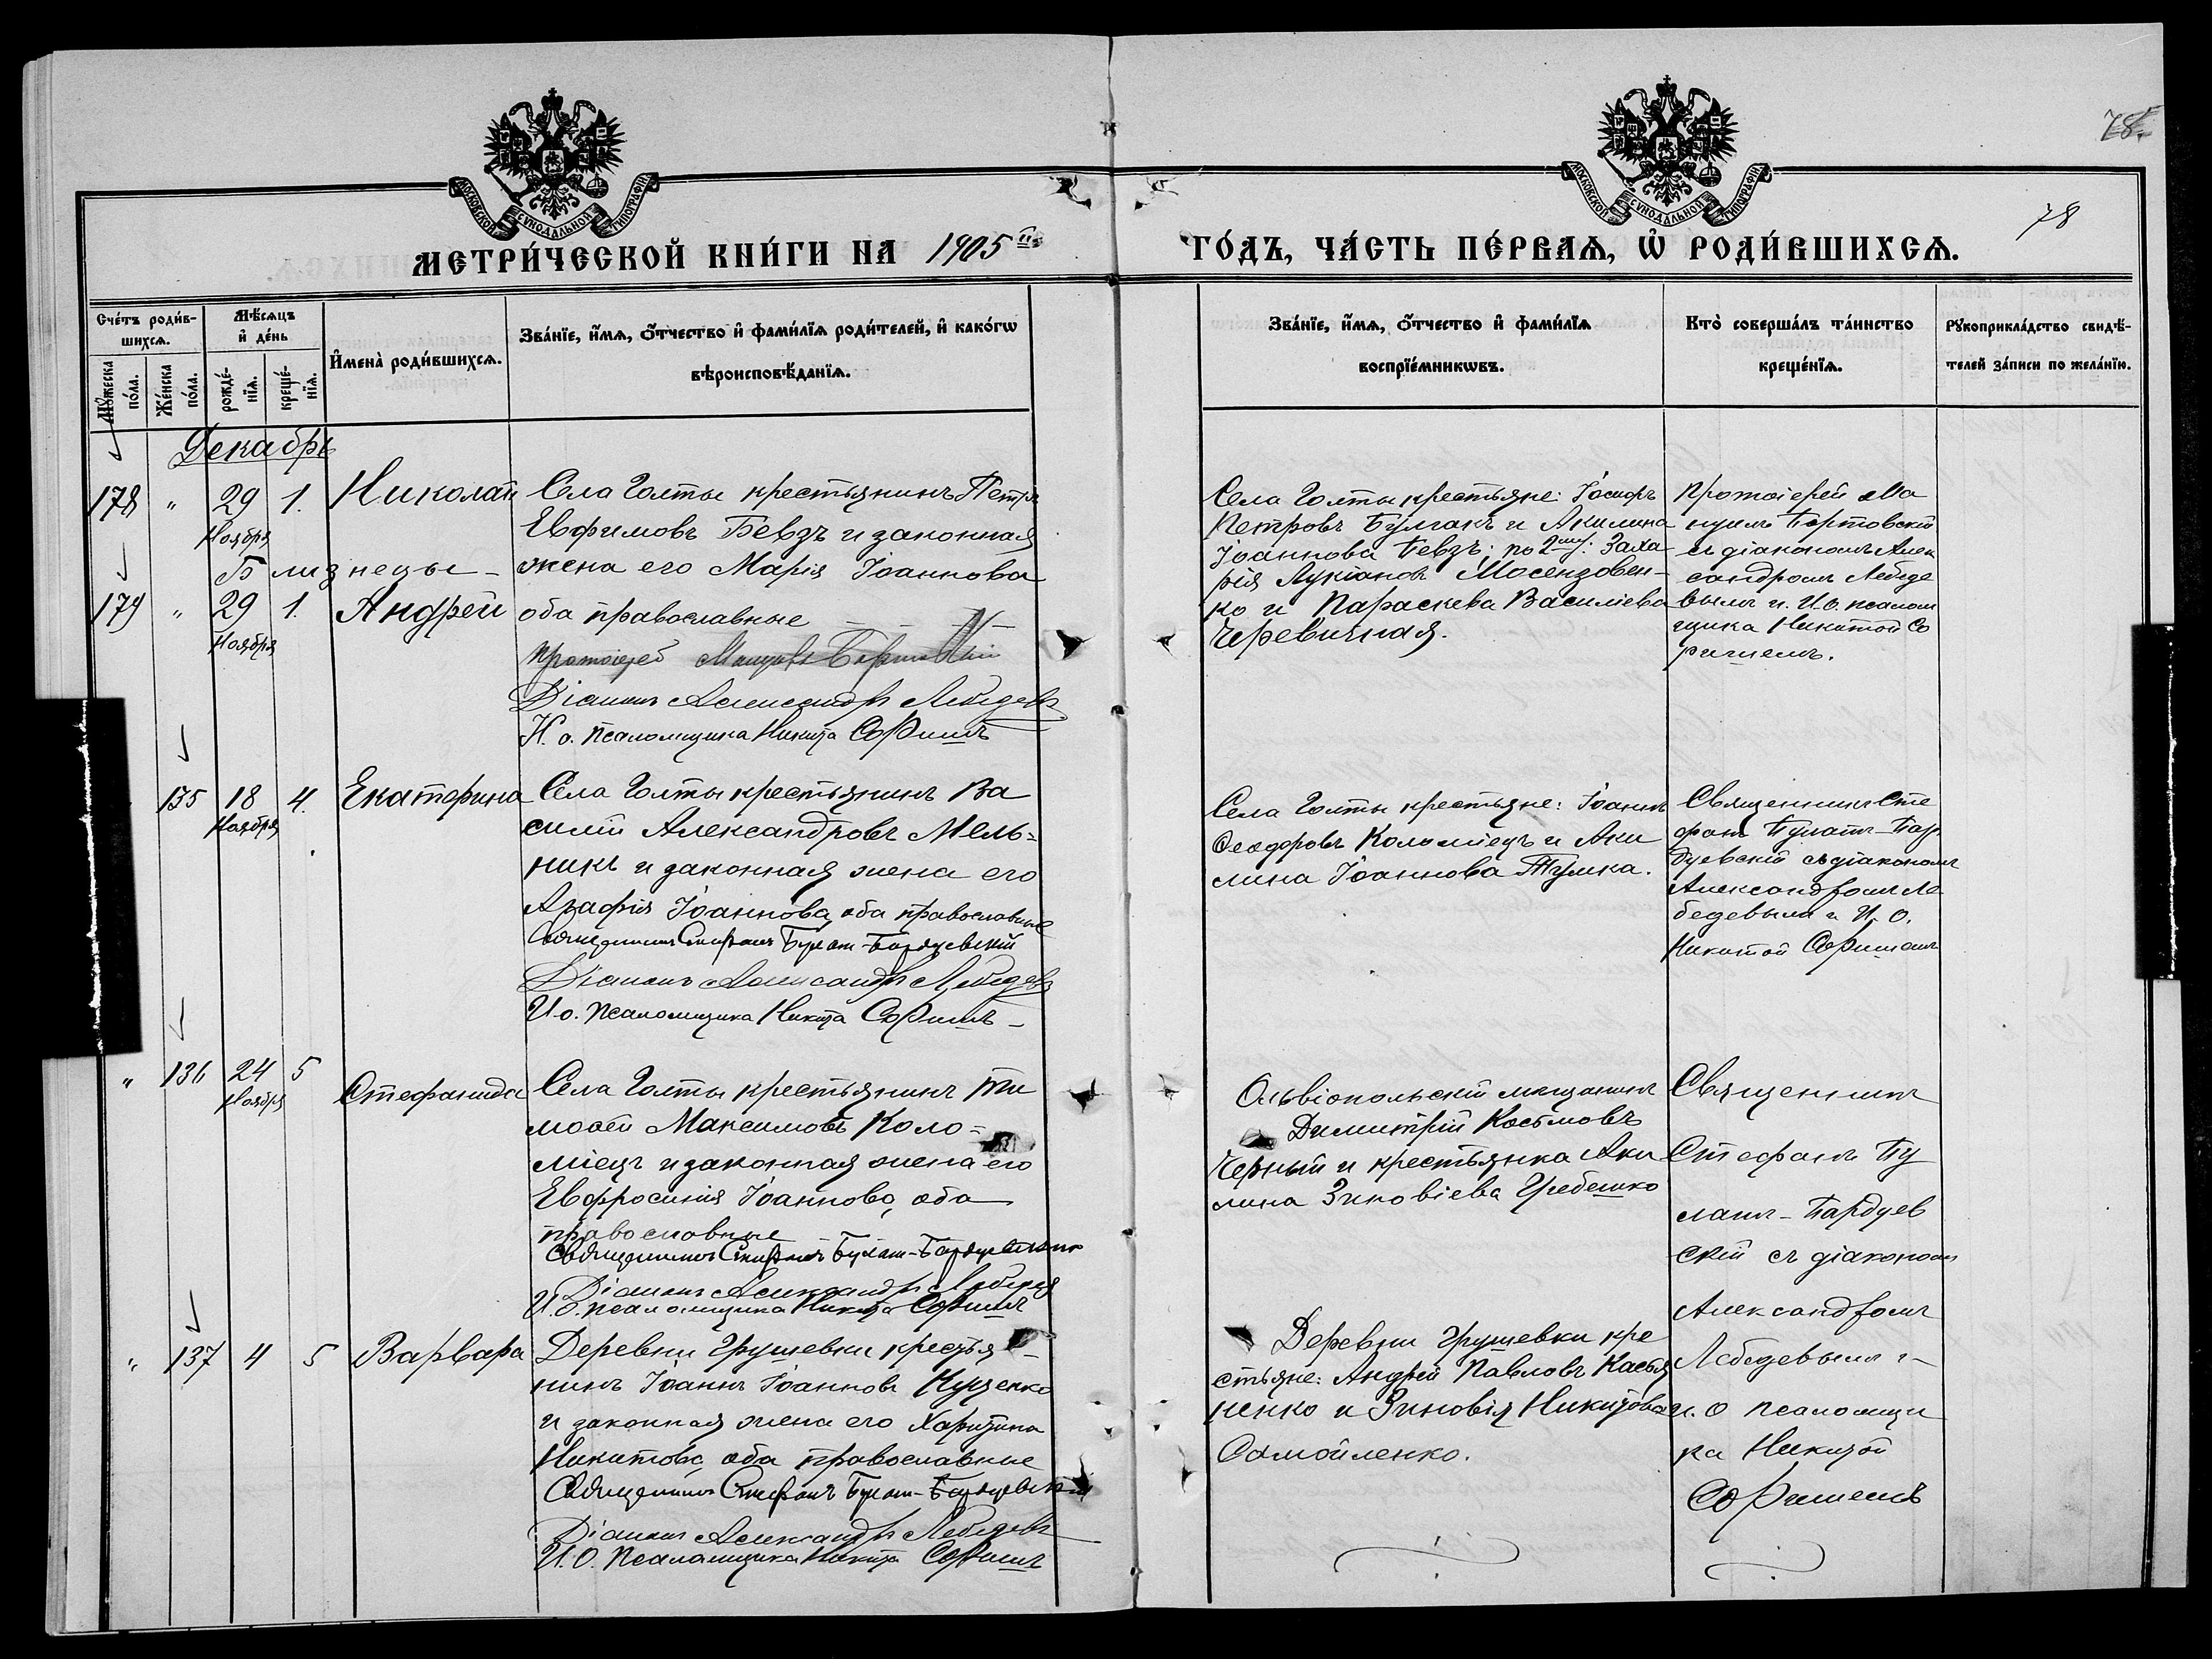 78.
78
МОСКОВСКОЙ СУНОДАЛЬНОЙ ТИПОГРАФІИ
МОСКОВСКОЙ СУНОДАЛЬНОЙ ТИПОГРАФІИ
МЕТРИ́ЧЕСКОЙ КНИ́ГИ НА 1905 й
ГО́ДЪ, ЧА́СТЬ ПЕ́РВАѦ, Ѡ҆ РОДИ́ВШИХСѦ.
Сче́тъ роди́в-
шихсѧ.
Мꙋ́жеска
по́ла.
Же́нска
по́ла.
Мѣ́сѧцъ
и҆ де́нь
рожде́-
нїѧ.
креще́-
нїѧ.
И҆мена̀ роди́вшихсѧ.
Зва́нїе, и҆́мѧ, ѻ҆́тчество и҆ фами́лїѧ роди́телей, и҆ како́гѡ
вѣроисповѣ́данїѧ.
Зва́нїе, и҆́мѧ, ѻ҆́тчество и҆ фами́лїѧ
воспрїе́мникѡвъ.
Кто̀ соверша́лъ та́инство
креще́нїѧ.
Рꙋкоприкла́дство свидѣ́-
телей за́писи по жела́нїю.
Декабрь
178 " 29 1. Николай
Ноября
Близнецы -
179 " 29 1. Андрей
Ноября
Села Голты крестьянинъ Петръ
Евфимовъ Бевзъ и законная
жена его Марія Іоаннова
оба православные
Протоіерей
Діаконъ Александръ Лебедевъ
И. о. псаломщика Никита Соришъ
Села Голты крестьяне: Іосифъ
Петровъ Булгакъ и Акилина
Іоаннова Бевзъ; по 2му: Заха-
рія Лукіановъ Мосендзовен-
ко и Параскева Василіева
Черевичная.
Протоіерей Ма
съ діакономъ Алек
сандромъ Лебеде
вымъ и. И.О. псалом
щика Никитой Со
ришемъ.
135 18 4. Екатерина
Ноября
Села Голты крестьянинъ Ва
силій Александровъ Мель=
никъ и законная жена его
Агафія Іоаннова, оба православные
Священникъ Стефанъ Булат-Бардуевскій
Діаконъ Александръ Лебедевъ
И.о. псаломщика Никита Соришъ -
Села Голты крестьяне: Іоаннъ
Ѳеодоровъ Коломіецъ и Аки
лина Іоаннова Тулика.
Священникъ Сте
фанъ Булатъ-Бар
дуевскій съ діакономъ
Александромъ Ле
бедевымъ и И. О.
Никитой Соришемъ
" 136 24 5 Стефанида
Ноября
Села Голты крестьянинъ Ти
моѳей Максимовъ Коло=
міецъ и законная жена его
Евфросинія Іоаннова, оба
православные
Священникъ Стефанъ Булат-Бардуевскій
Діаконъ Александръ Лебедевъ
И.О. псаломщика Никита Соришъ
Ольвіопольскій мещанинъ
Димитрій Косьмовъ
Черный и крестьянка Аки
лина Зиновіева Гребешко
Священникъ
Стефанъ Бу
латъ-Бардуев
скій съ діакономъ
Александромъ
Лебедевымъ и
и. О псаломщи
ка Никитой
Соришемъ
" 137 4 5 Варвара
Деревни Грушевки крестья-
нинъ Іоаннъ Іоанновъ Куценко
и законная жена его Харитина
Никитова, оба православные
Священникъ Стефанъ Булат-Бардуевскій
Діаконъ Александръ Лебедевъ
И.О. псаломщика Никита Соришъ
Деревни Грушевки кре
стьяне: Андрей Павловъ Касья
ненко и Зиновія Никитова
Самойленко.